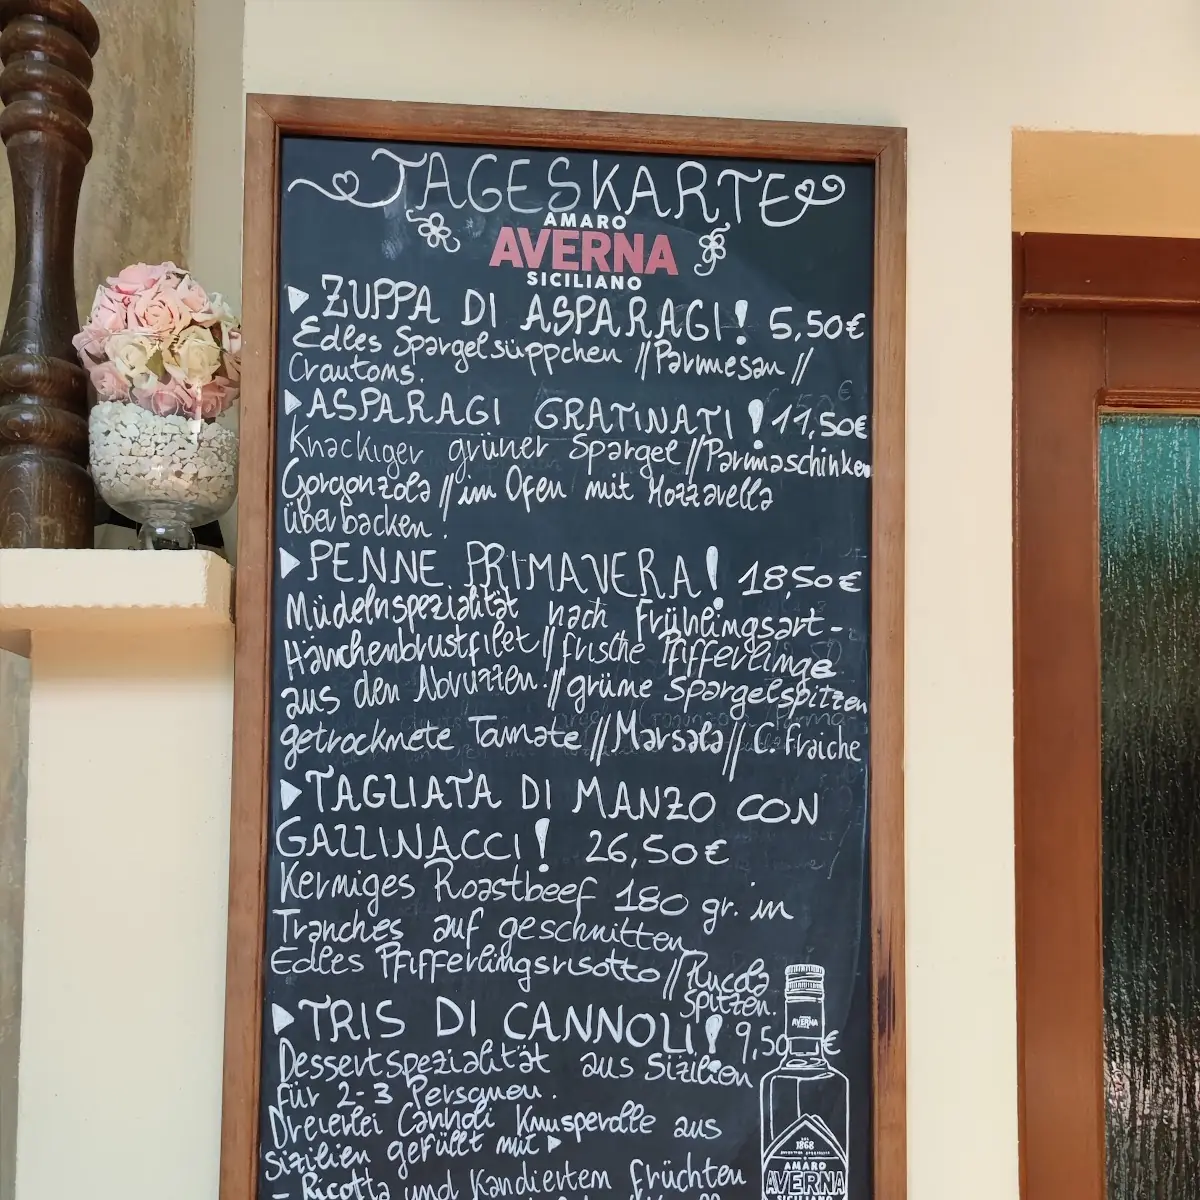 TAGESKARTE
AMARO
AVERNA
SICILIANO
ZUPPA DI ASPARAGI! 5,50€
Edles Spargelsüppchen // Parmesan //
Crautons.
ASPARAGI GRATINATI! 11,50€
Knackiger grüner Spargel // Parmaschinken
Gorgonzola // im Ofen mit Mozzarella
überbacken!
PENNE PRIMAVERA! 18,50€
Müdelnspezialität nach Frühlingsart-
Hänchenbrustfilet // frische Pfifferlinge
aus den Abruzzen! // grüne Spargelspitzen
getrocknete Tamate // Marsala // C. fraiche
TAGLIATA DI MANZO CON
GALLINACCI! 26,50€
Kerniges Roastbeef 180 gr. in
Tranches auf geschnitten
Edles Pfifferlingsrisotto // Rucola
spitzen.
TRIS DI CANNOLI! 9,50€
Dessertspezialität aus Sizilien
für 2-3 Personen.
Dreierlei Cannoli Knusperolle aus
Sizilien gefüllt mit
- Ricotta und Kandiertem früchten
AVERNA
1868
AMARO
AVERNA
SICILIANO